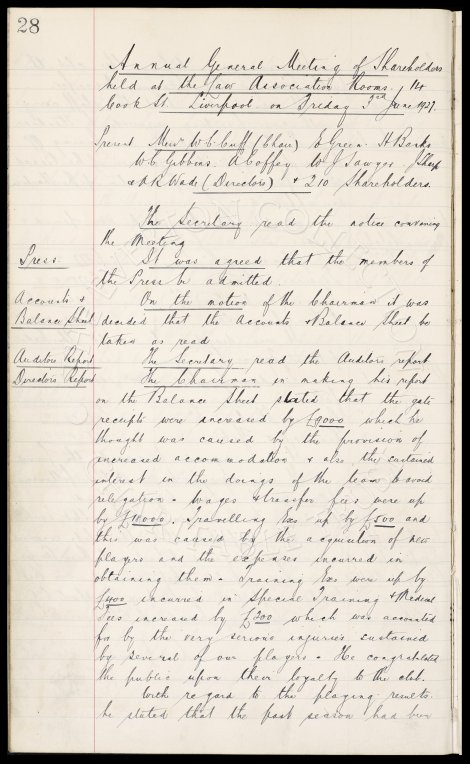 28
Annual General Meeting of Shareholders
held at the Law Association Rooms, 14
Cook St. Liverpool on Friday 3rd June 1927.
Present Messrs W.C. Cuff (Chair) E. Green. H. Banks
W.C. Gibbins. A. Coffey W.J. Sawyer J. Sharp
& A.R. Wade (Directors) & 210 Shareholders.
The Secretary read the notice convening
the Meeting
Press. It was agreed that the members of
the Press be admitted.
Accounts & On the motion of the Chairman it was
Balance Sheet decided that the Accounts & Balance Sheet be
taken as read
Auditors Report The Secretary read the Auditors report
Directors Report The Chairman in making his report
on the Balance Sheet stated that the gate
receipts were increased by £8000 which he
thought was caused by the provision of
increased accommodation & also the sustained
interest in the doings of the team to avoid
relegation - Wages & transfer fees were up
by £18000. Travelling Exs up by £500 and
this was caused by the acquisition of new
players and the expenses incurred in
obtaining them - Training Exs were up by
£400 incurred in Special Training & Medical
Fees increased by £200 which was accounted
for by the very serious injuries sustained
by several of our players - He congratulated
the public upon their loyalty to the club.
With regard to the playing results.
he stated that the past season had been